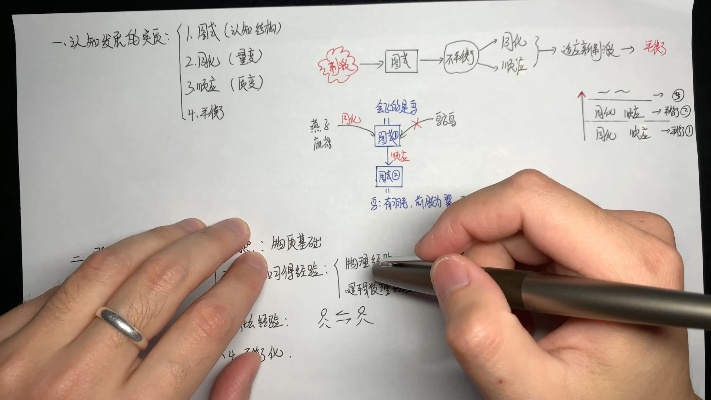 一.认知发展的实质:
1.图式(认知结构)
2.同化(量变)
3.顺应(质变)
4.平衡
刺激 → 图式 → 不平衡 → 同化 顺应 → 适应新刺激 → 平衡
会飞的是鸟
燕子
麻雀
同化
图式①
顺应
图式②
鸟:有羽毛,前肢为翼
③
同化 顺应 → 平衡②
同化 顺应 → 平衡①
二.
:物质基础
习得经验:
物理经验
逻辑数理
经验:
4.平衡化.